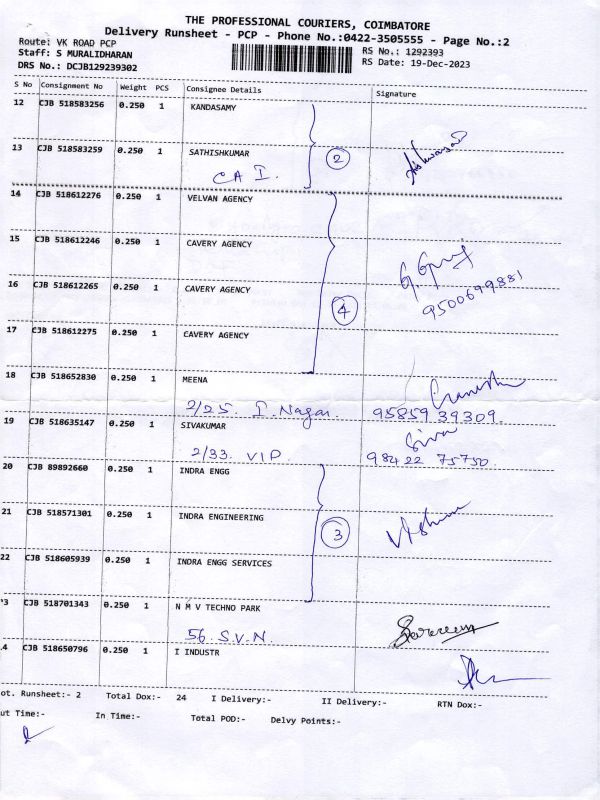 THE PROFESSIONAL COURIERS, COIMBATORE
Delivery Runsheet - PCP - Phone No.:0422-3505555 - Page No.:2
Route: VK ROAD PCP
RS No.: 1292393
Staff: S MURALIDHARAN
RS Date: 19-Dec-2023
DRS No.: DCJB129239302
S No Consignment No Weight PCS Consignee Details Signature
12 CJB 518583256 0.250 1 KANDASAMY
13 CJB 518583259 0.250 1 SATHISHKUMAR
2
CA I.
14 CJB 518612276 0.250 1 VELVAN AGENCY
15 CJB 518612246 0.250 1 CAVERY AGENCY
16 CJB 518612265 0.250 1 CAVERY AGENCY
9500699881
4
17 CJB 518612275 0.250 1 CAVERY AGENCY
18 CJB 518652830 0.250 1 MEENA
2/25. I. Nagar. 95859 39309.
19 CJB 518635147 0.250 1 SIVAKUMAR
Siva
2/33. VIP. 98422 75750.
20 CJB 89892660 0.250 1 INDRA ENGG
21 CJB 518571301 0.250 1 INDRA ENGINEERING
3
22 CJB 518605939 0.250 1 INDRA ENGG SERVICES
3 CJB 518701343 0.250 1 N M V TECHNO PARK
56. S.V.N.
4 CJB 518650796 0.250 1 I INDUSTR
ot. Runsheet:- 2 Total Dox:- 24 I Delivery:- II Delivery:- RTN Dox:-
ut Time:- In Time:- Total POD:- Delvy Points:-